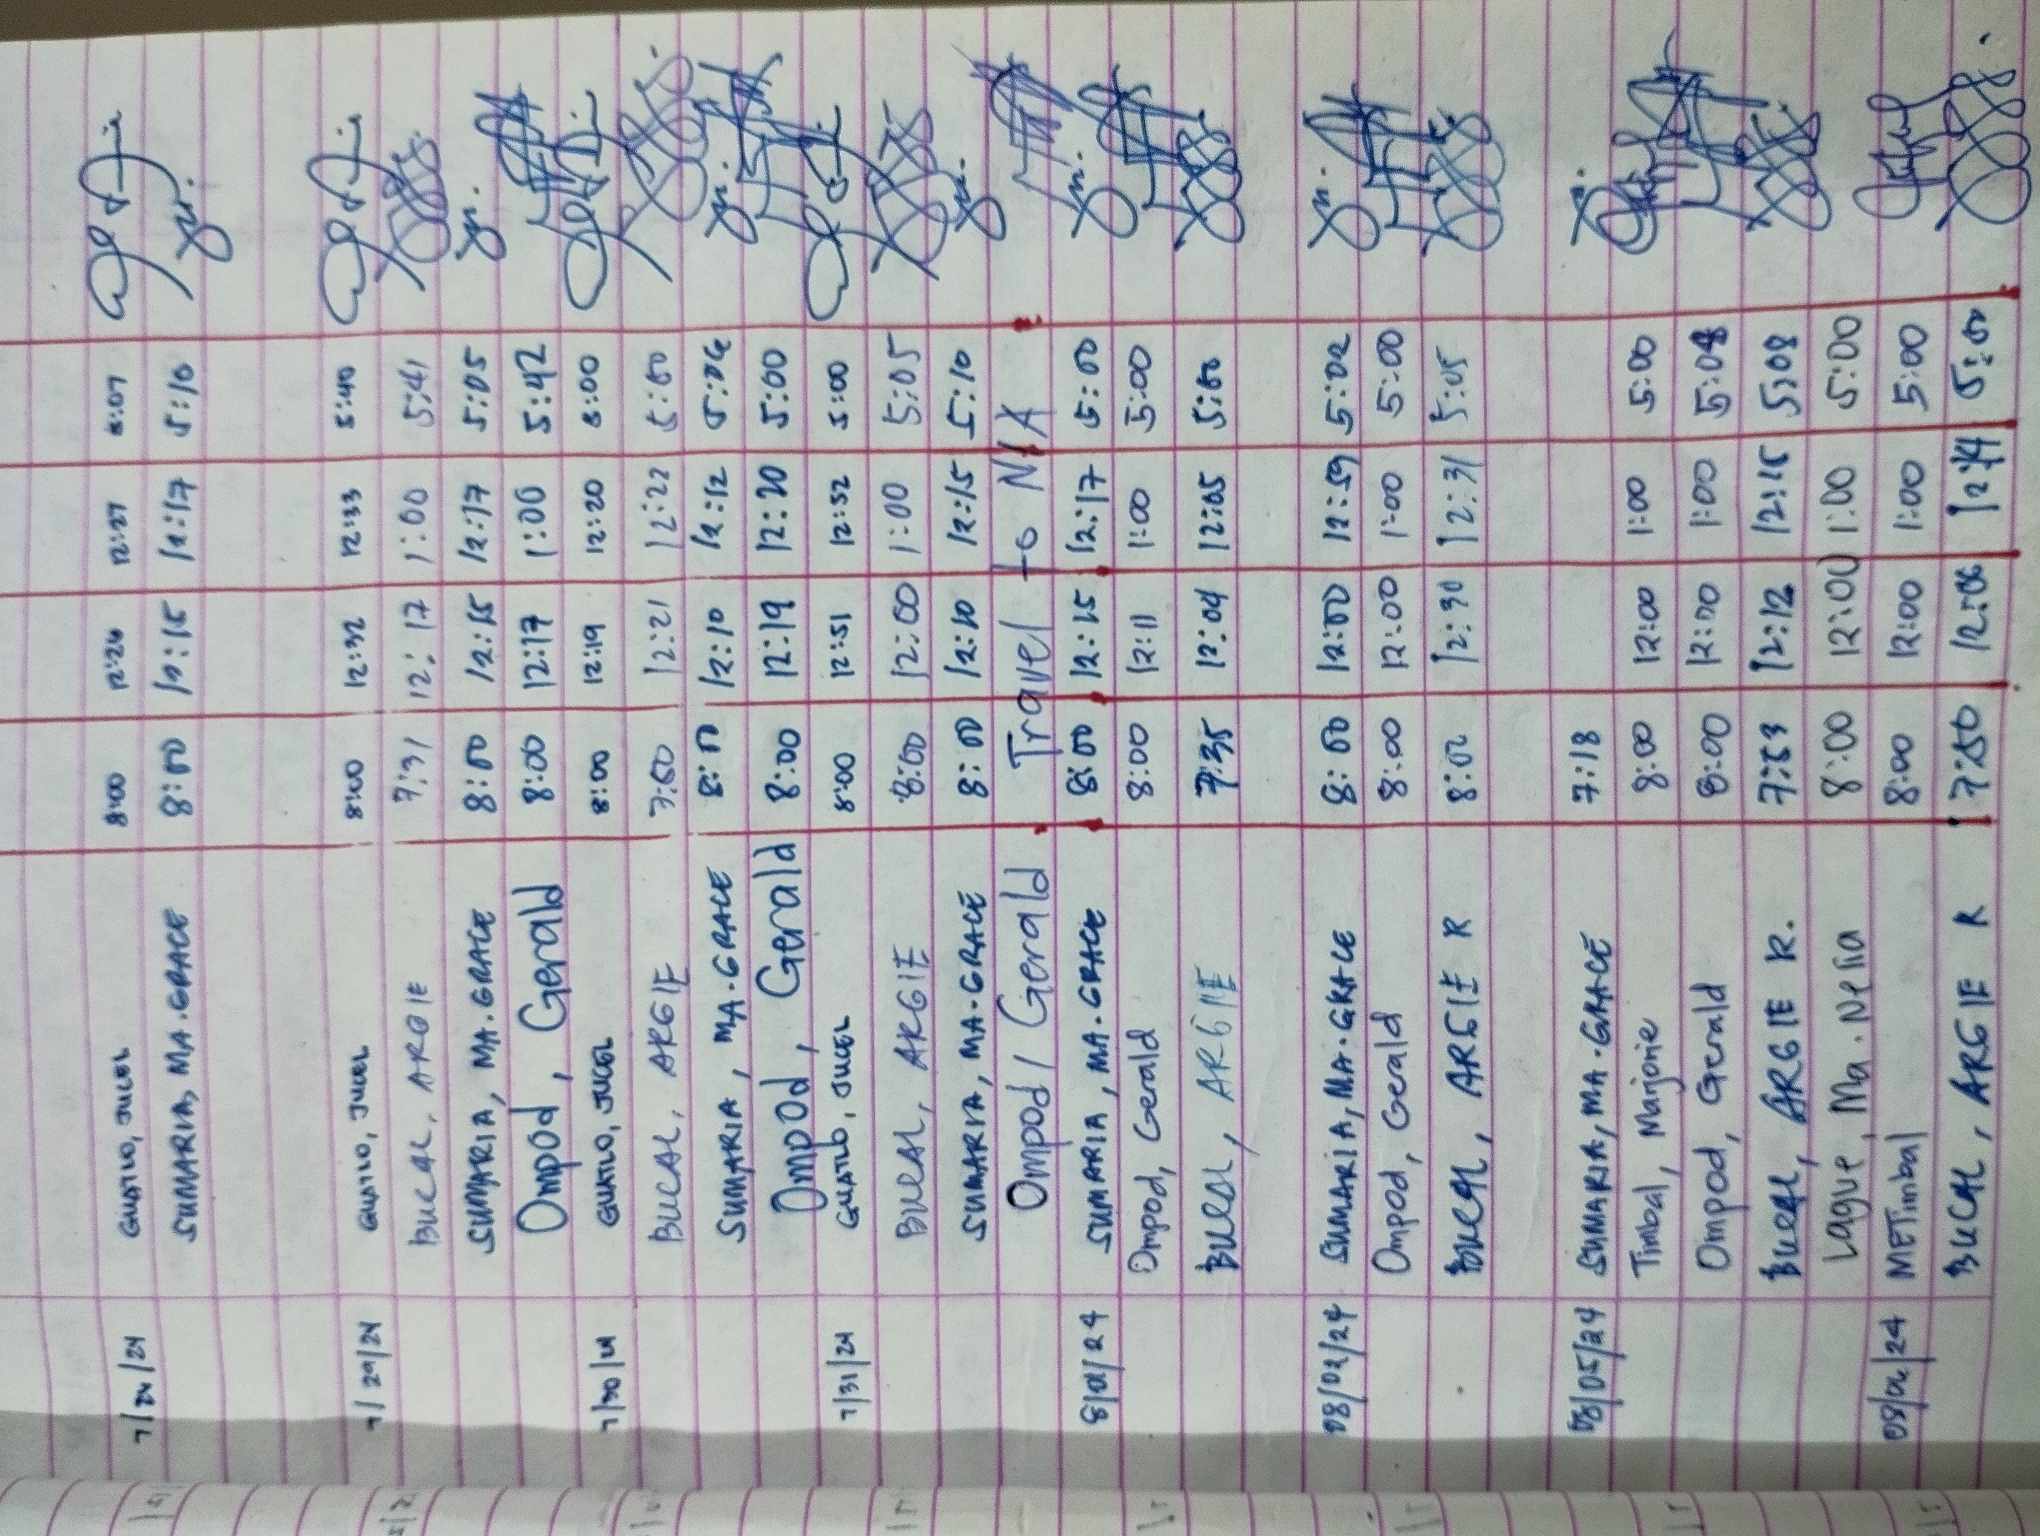 7/24/24 GUATNO, JUCEL 8:00 12:26 12:27 5:07
SUMARIA, MA. GRACE 8:00 12:15 12:17 5:10
7/29/24 GUATNO, JUCEL 8:00 12:32 12:33 5:40
BUCAL, ARGIE 7:31 12:17 1:00 5:41
SUMARIA, MA. GRACE 8:00 12:15 12:17 5:05
Ompod, Gerald 8:00 12:17 1:00 5:42
7/30/24 GUATNO, JUCEL 8:00 12:19 12:20 5:00
BUCAL, ARGIE 7:50 12:21 12:22 5:00
SUMARIA, MA. GRACE 8:00 12:10 12:12 5:06
Ompod, Gerald 8:00 12:19 12:20 5:00
7/31/24 GUATNO, JUCEL 8:00 12:51 12:52 5:00
BUCAL, ARGIE 8:00 12:00 1:00 5:05
SUMARIA, MA. GRACE 8:00 12:10 12:15 5:10
Ompod, Gerald Travel to NIA
8/01/24 SUMARIA, MA. GRACE 8:00 12:15 12:17 5:00
Ompod, Gerald 8:00 12:11 1:00 5:00
BUCAL, ARGIE 7:35 12:04 12:05 5:00
08/02/24 SUMARIA, MA. GRACE 8:00 12:00 12:59 5:02
Ompod, Gerald 8:00 12:00 1:00 5:00
BUCAL, ARGIE R 8:02 12:30 12:31 5:05
08/05/24 SUMARIA, MA. GRACE 7:18
Timbal, Marjorie 8:00 12:00 1:00 5:00
Ompod, Gerald 8:00 12:00 1:00 5:08
BUCAL, ARGIE R. 7:53 12:12 12:15 5:08
Lague, Ma. Nelia 8:00 12:00 1:00 5:00
08/06/24 METimbal 8:00 12:00 1:00 5:00
BUCAL, ARGIE R 7:50 12:06 5:00